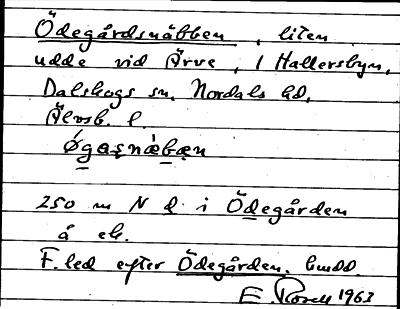 Ödegårdsnäbben, liten
udde vid Ärve, i Hallersbyn,
Dalskogs sn, Nordals hd,
Älvsb. l.
øgaṣnæ̀bæn
250 m N d. i Ödegården
å ek.
F. led efter Ödegården. hmdd.
E. Rosell 1963